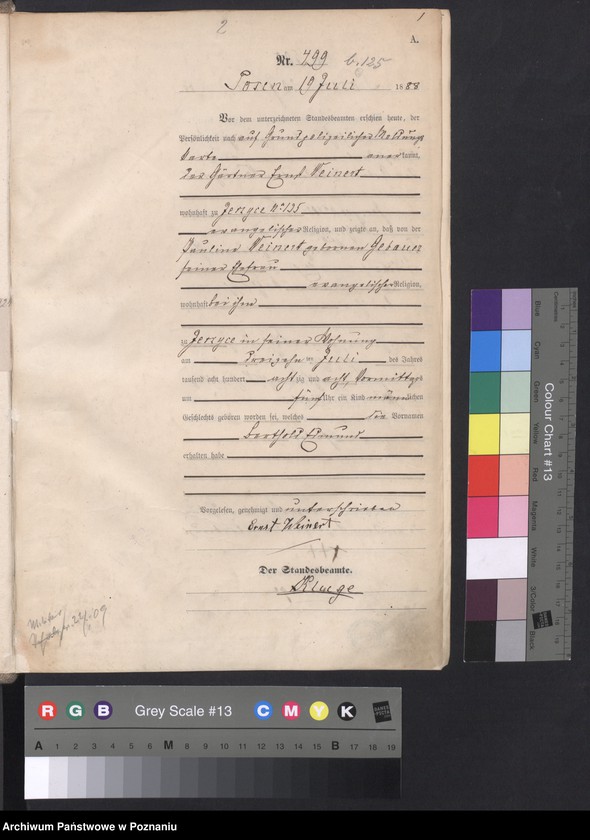 2
1
A.
Nr. 499 b.125
Posen am 19 Juli 1888
Vor dem unterzeichneten Standesbeamten erschien heute, der
Persönlichkeit nach auf Grund polizeilicher Meldungs
karte anerkannt,
der Gärtner Ernst Weinert
wohnhaft zu Jerzyce No 135
evangelischer Religion, und zeigte an, daß von der
Pauline Weinert geborenen Gebauer
seiner Ehefrau
evangelischer Religion,
wohnhaft bei ihm
zu Jerzyce in seiner Wohnung
am dreizehn ten Juli des Jahres
tausend acht hundert acht zig und acht Vormittags
um fünf Uhr ein Kind männlichen
Geschlechts geboren worden sei, welches die Vornamen
Berthold Edmund
erhalten habe
Vorgelesen, genehmigt und unterschrieben
Ernst Weinert
Der Standesbeamte.
Kluge
Militär
09
Colour Chart #13
Blue
Cyan
Green
Yellow
Red
Magenta
White
3/Color
Black
Centimetres
R G B Grey Scale #13 C M Y K
A 1 2 3 4 5 6 M 8 9 10 11 12 13 14 15 B 17 18 19
Archiwum Państwowe w Poznaniu